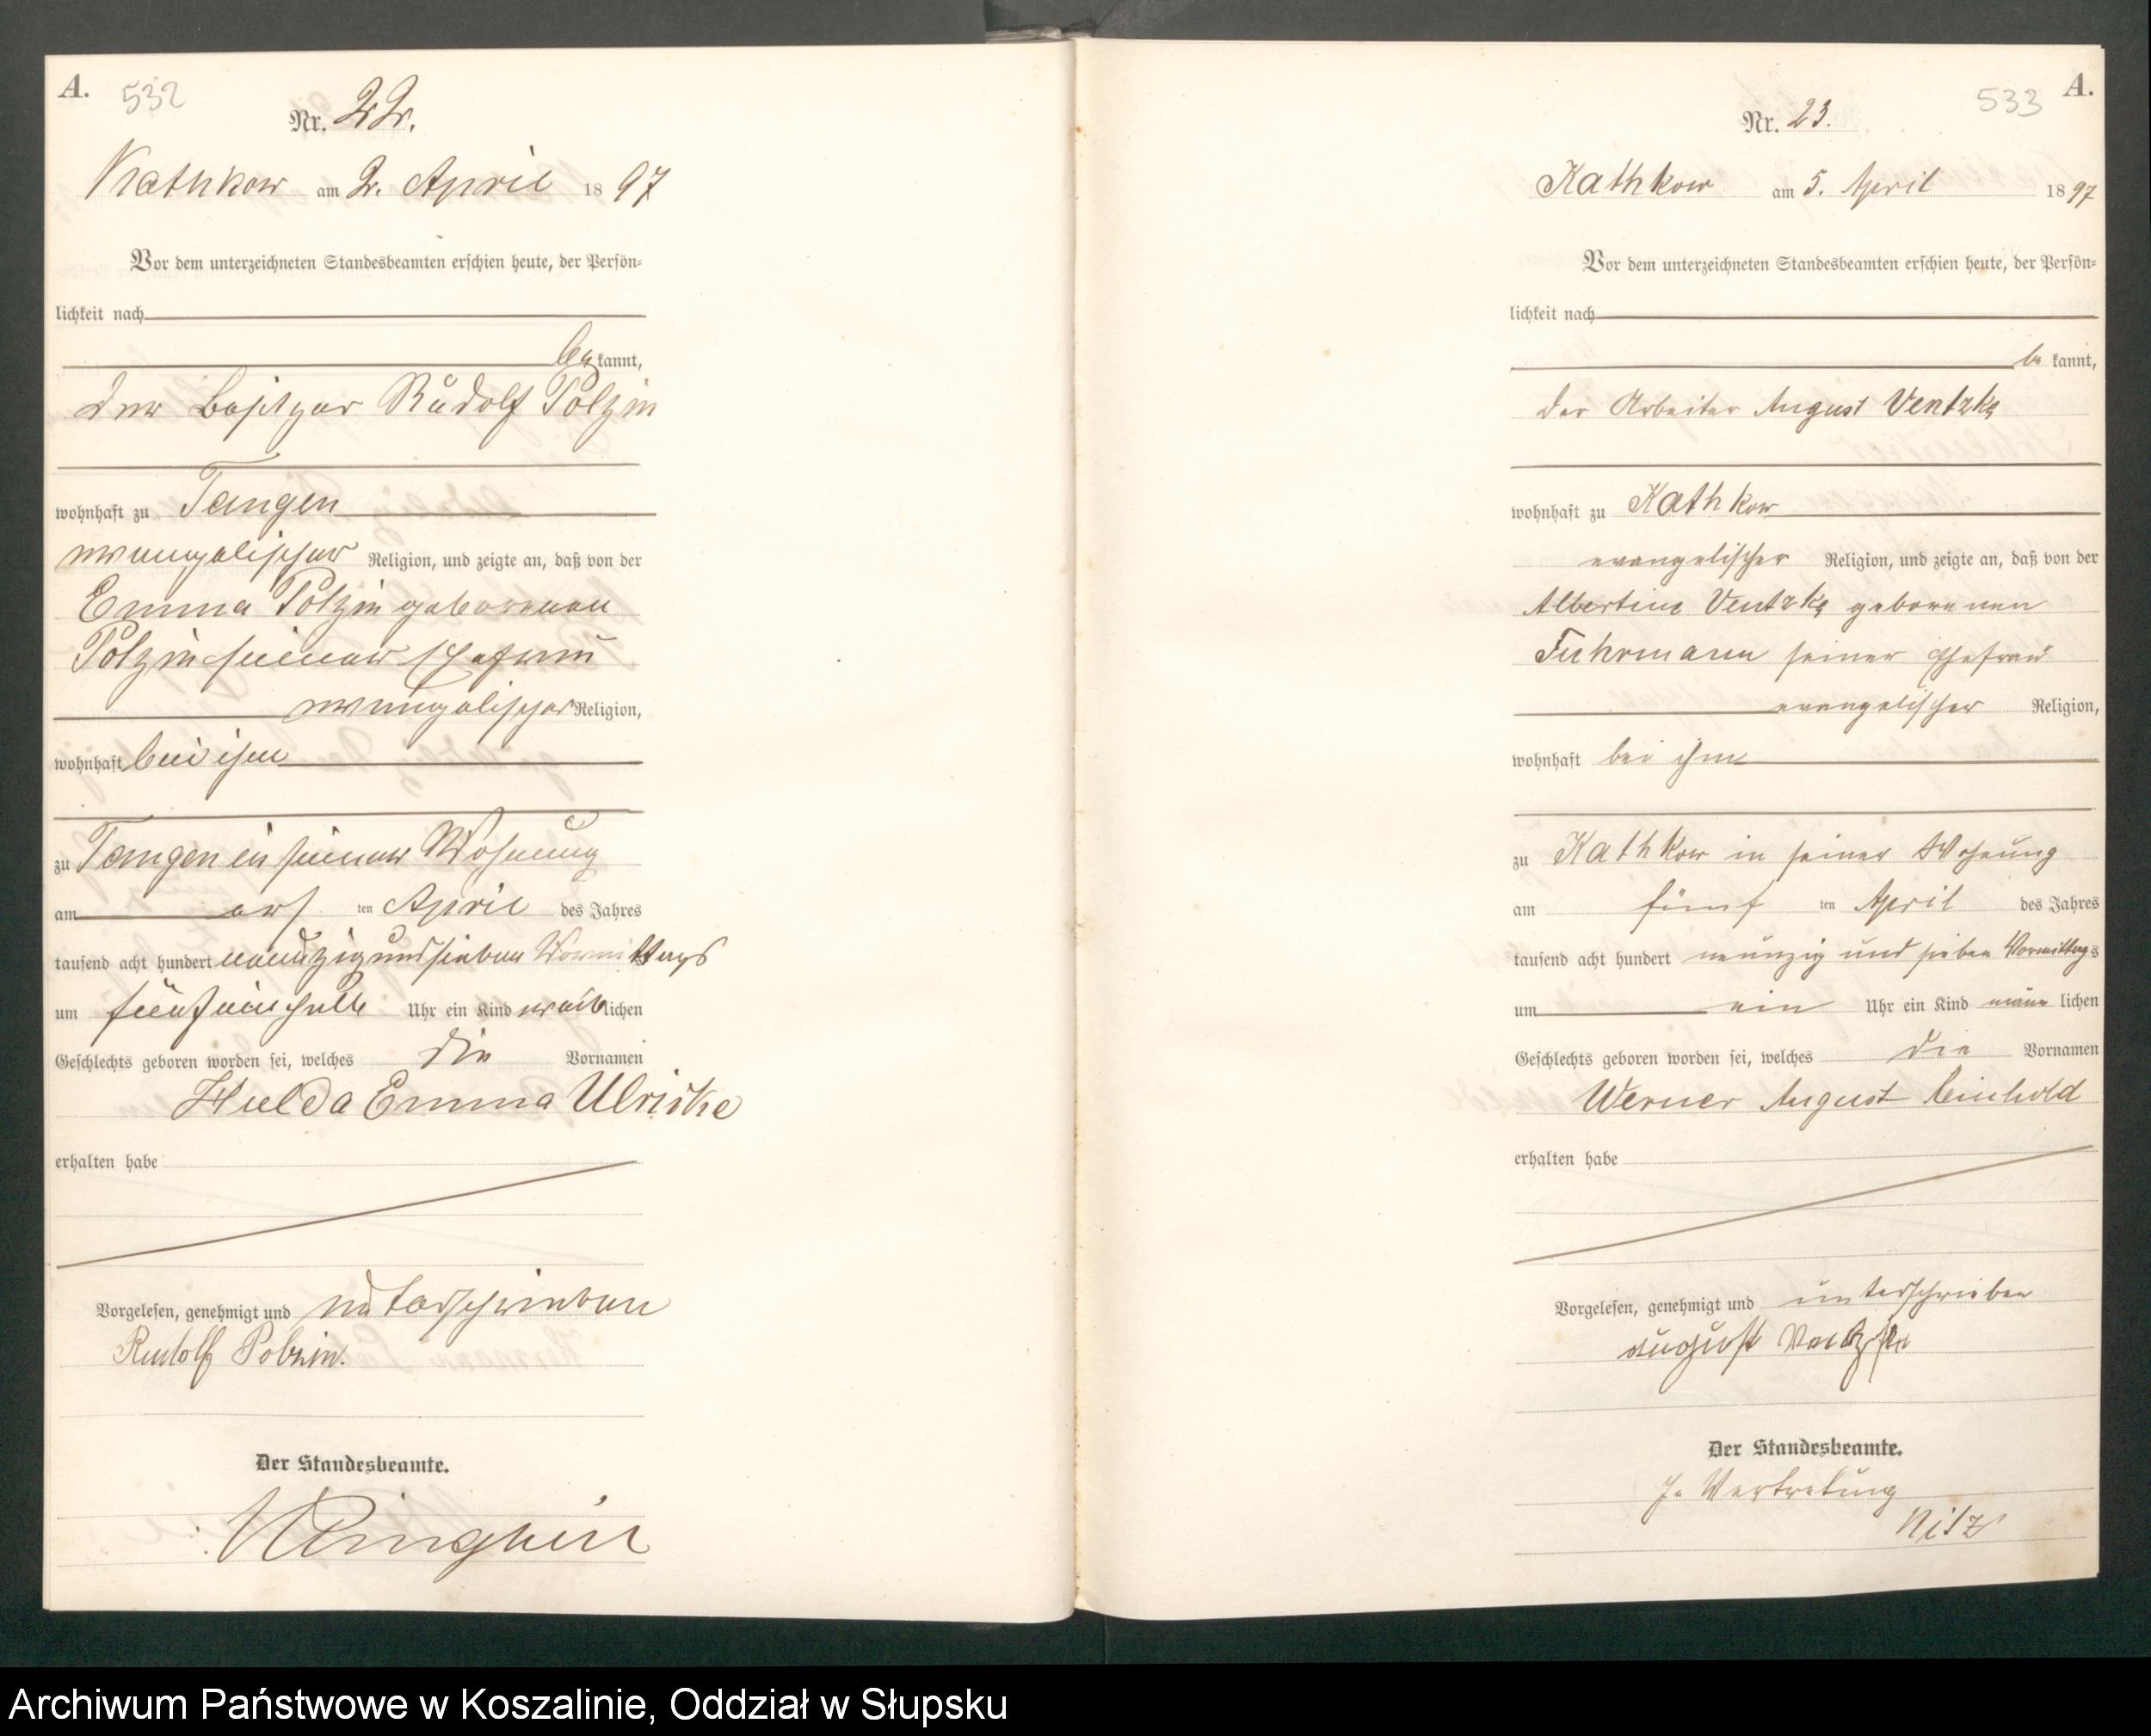 A.
532
Nr. 22.
Kathkow am 2. April 1897
Vor dem unterzeichneten Standesbeamten erschien heute, der Persön-
lichkeit nach
be kannt,
der Besitzer Rudolf Polzin
wohnhaft zu Tangen
evangelischer Religion, und zeigte an, daß von der
Emma Polzin geborenen
Polzin seiner Ehefrau
evangelischer Religion,
wohnhaft bei ihm
zu Tangen in seiner Wohnung
am ersten April des Jahres
tausend acht hundert neunzig und sieben Vormittags
um fünfeinhalb Uhr ein Kind weiblichen
Geschlechts geboren worden sei, welches die Vornamen
Hulda Emma Ulricke
erhalten habe
Vorgelesen, genehmigt und unterschrieben
Rudolf Polzin.
Der Standesbeamte.
A.
533
Nr. 23.
Kathkow am 5. April 1897
Vor dem unterzeichneten Standesbeamten erschien heute, der Persön-
lichkeit nach
be kannt,
der Arbeiter August Ventzke
wohnhaft zu Kathkow
evangelischer Religion, und zeigte an, daß von der
Albertine Ventzke geborenen
Fuhrmann seiner Ehefrau
evangelischer Religion,
wohnhaft bei ihm
zu Kathkow in seiner Wohnung
am fünf ten April des Jahres
tausend acht hundert neunzig und sieben Vormittags
um ein Uhr ein Kind männ lichen
Geschlechts geboren worden sei, welches die Vornamen
Werner August Reinhold
erhalten habe
Vorgelesen, genehmigt und unterschrieben
August Ventzke
Der Standesbeamte.
In Vertretung
Nitz
Archiwum Państwowe w Koszalinie, Oddział w Słupsku